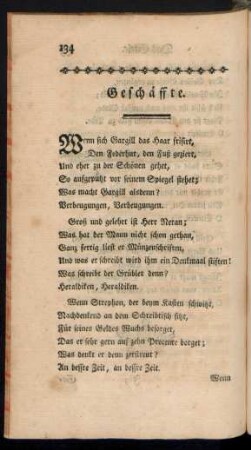 134
Geschäffte.
Wenn sich Gargill das Haar frisirt,
Den Federhut, den Fuß gezieret,
Und eher zu der Schönen gehet,
So aufgeputzt vor seinem Spiegel stehet;
Was macht Gargill alsdenn?
Verbeugungen, Verbeugungen.
Groß und gelehrt ist Herr Neran;
Was hat der Mann nicht schon gethan,
Ganz fertig liest er Münzenschriften,
Und was er schreibt wird ihm ein Denkmaal stiften!
Was schreibt der Grübler denn?
Heraldiken, Heraldiken.
Wenn Strephon, der beym Kasten schwitzt,
Nachdenkend an dem Schreibtisch sitzt,
Für seines Geldes Wuchs besorget,
Das er sehr gern auf zehn Procente borget;
Was denkt er denn zerstreut?
An bessre Zeit, an bessre Zeit.
Wenn